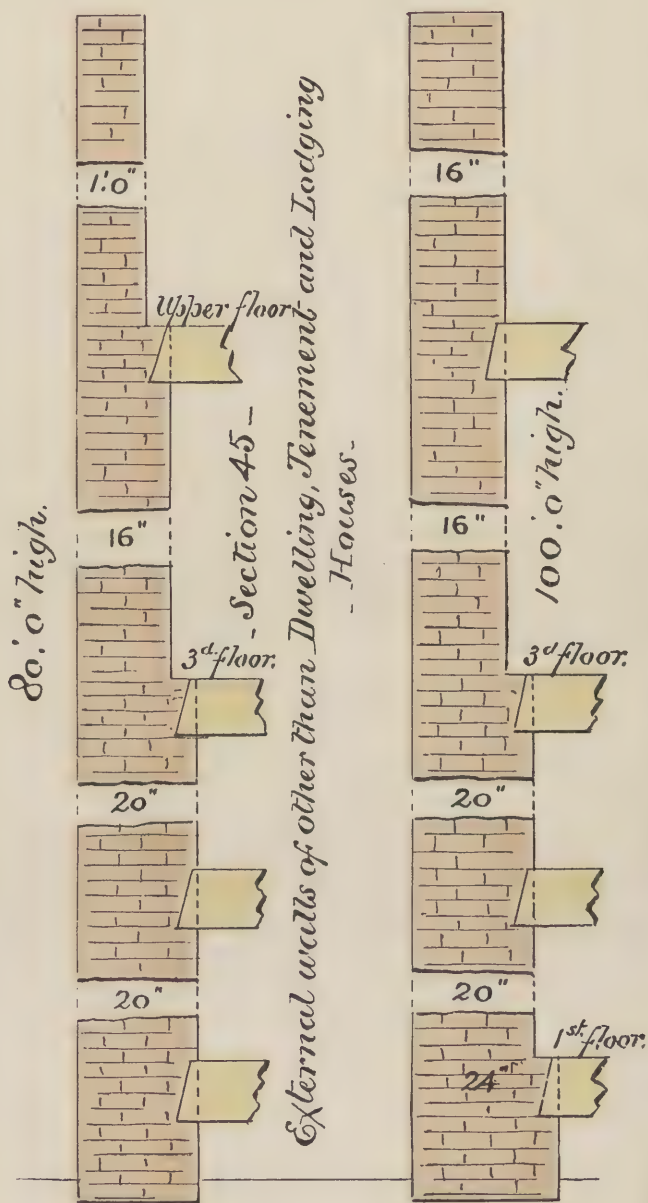 80'.0" high.
1'.0"
Upper floor
16"
3d floor.
20"
20"
- Section 45 -
External walls of other than Dwelling, Tenement and Lodging
- Houses -
100'.0" high.
16"
16"
3d floor.
20"
20"
1st floor.
24"